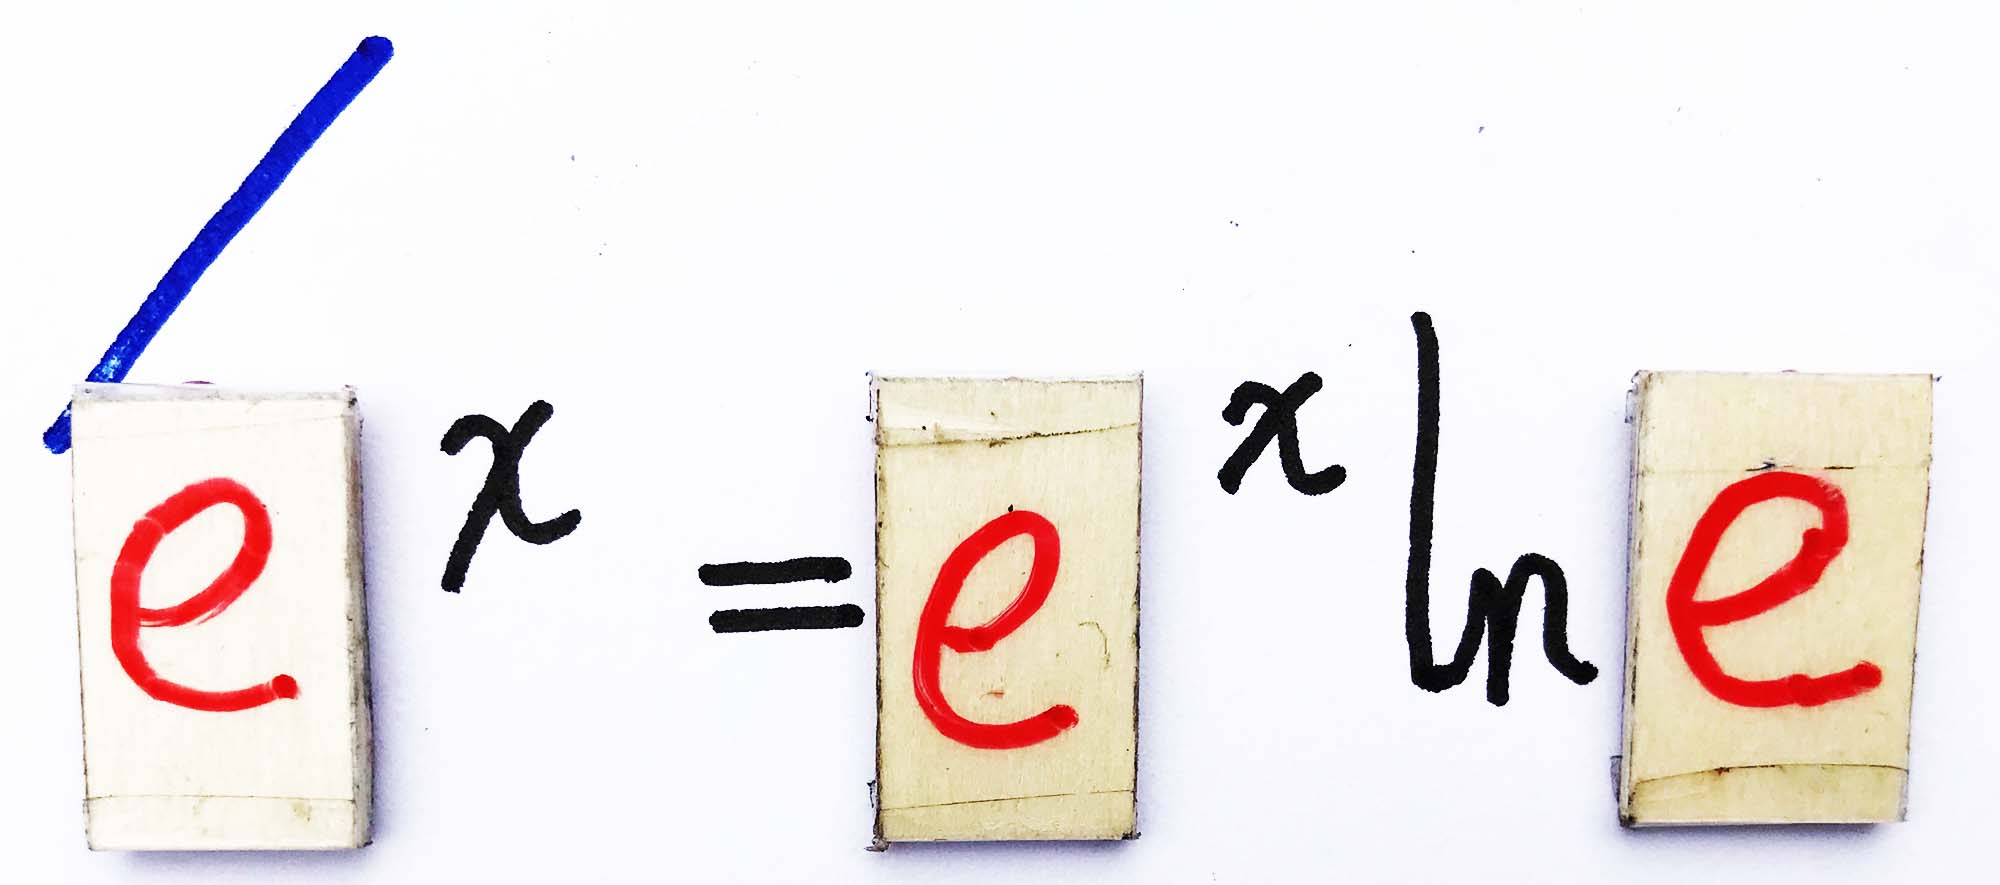 e^x = e^x ln e